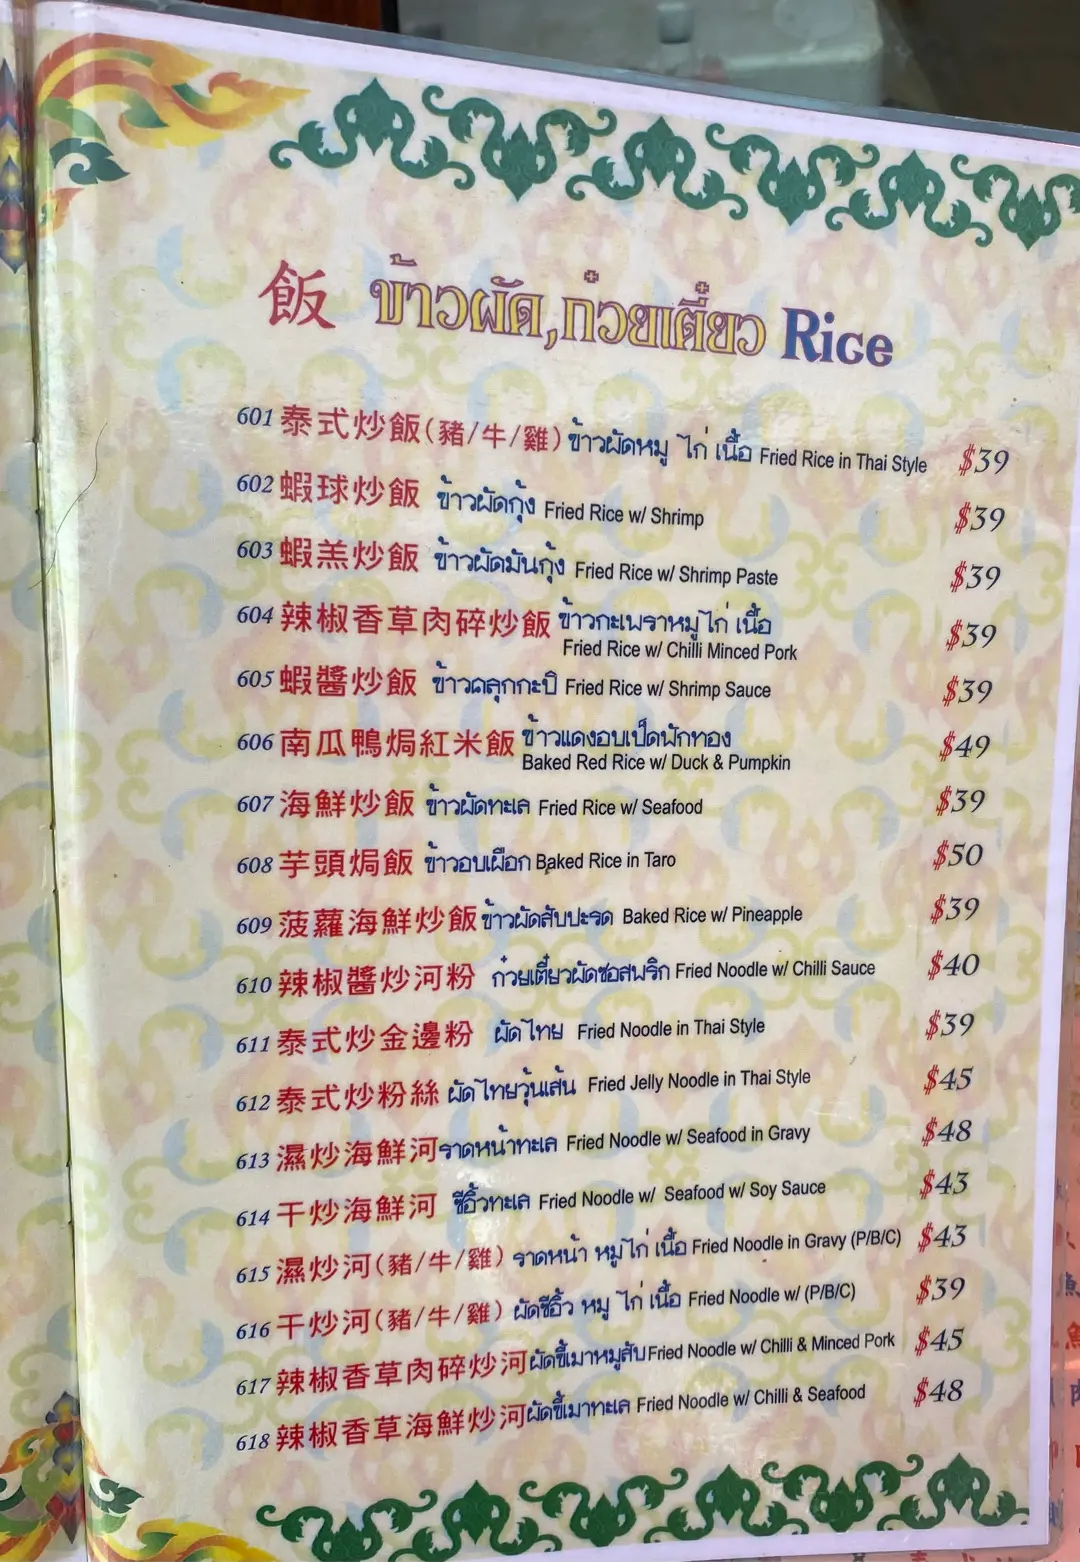 飯 ข้าวผัด,ก๋วยเตี๋ยว Rice
601 泰式炒飯(豬/牛/雞) ข้าวผัดหมู ไก่ เนื้อ Fried Rice in Thai Style $39
602 蝦球炒飯 ข้าวผัดกุ้ง Fried Rice w/ Shrimp $39
603 蝦羔炒飯 ข้าวผัดมันกุ้ง Fried Rice w/ Shrimp Paste $39
604 辣椒香草肉碎炒飯 ข้าวกะเพราหมูไก่ เนื้อ $39
Fried Rice w/ Chilli Minced Pork
605 蝦醬炒飯 ข้าวคลุกกะปิ Fried Rice w/ Shrimp Sauce $39
606 南瓜鴨焗紅米飯 ข้าวแดงอบเป็ดฟักทอง $49
Baked Red Rice w/ Duck & Pumpkin
607 海鮮炒飯 ข้าวผัดทะเล Fried Rice w/ Seafood $39
608 芋頭焗飯 ข้าวอบเผือก Baked Rice in Taro $50
609 菠蘿海鮮炒飯 ข้าวผัดสับปะรด Baked Rice w/ Pineapple $39
610 辣椒醬炒河粉 ก๋วยเตี๋ยวผัดซอสพริก Fried Noodle w/ Chilli Sauce $40
611 泰式炒金邊粉 ผัดไทย Fried Noodle in Thai Style $39
612 泰式炒粉絲 ผัดไทยวุ้นเส้น Fried Jelly Noodle in Thai Style $45
613 濕炒海鮮河 ราดหน้าทะเล Fried Noodle w/ Seafood in Gravy $48
614 干炒海鮮河 ซีอิ้วทะเล Fried Noodle w/ Seafood w/ Soy Sauce $43
615 濕炒河(豬/牛/雞) ราดหน้า หมูไก่ เนื้อ Fried Noodle in Gravy (P/B/C) $43
616 干炒河(豬/牛/雞) ผัดซีอิ้ว หมู ไก่ เนื้อ Fried Noodle w/ (P/B/C) $39
617 辣椒香草肉碎炒河 ผัดขี้เมาหมูสับ Fried Noodle w/ Chilli & Minced Pork $45
618 辣椒香草海鮮炒河 ผัดขี้เมาทะเล Fried Noodle w/ Chilli & Seafood $48